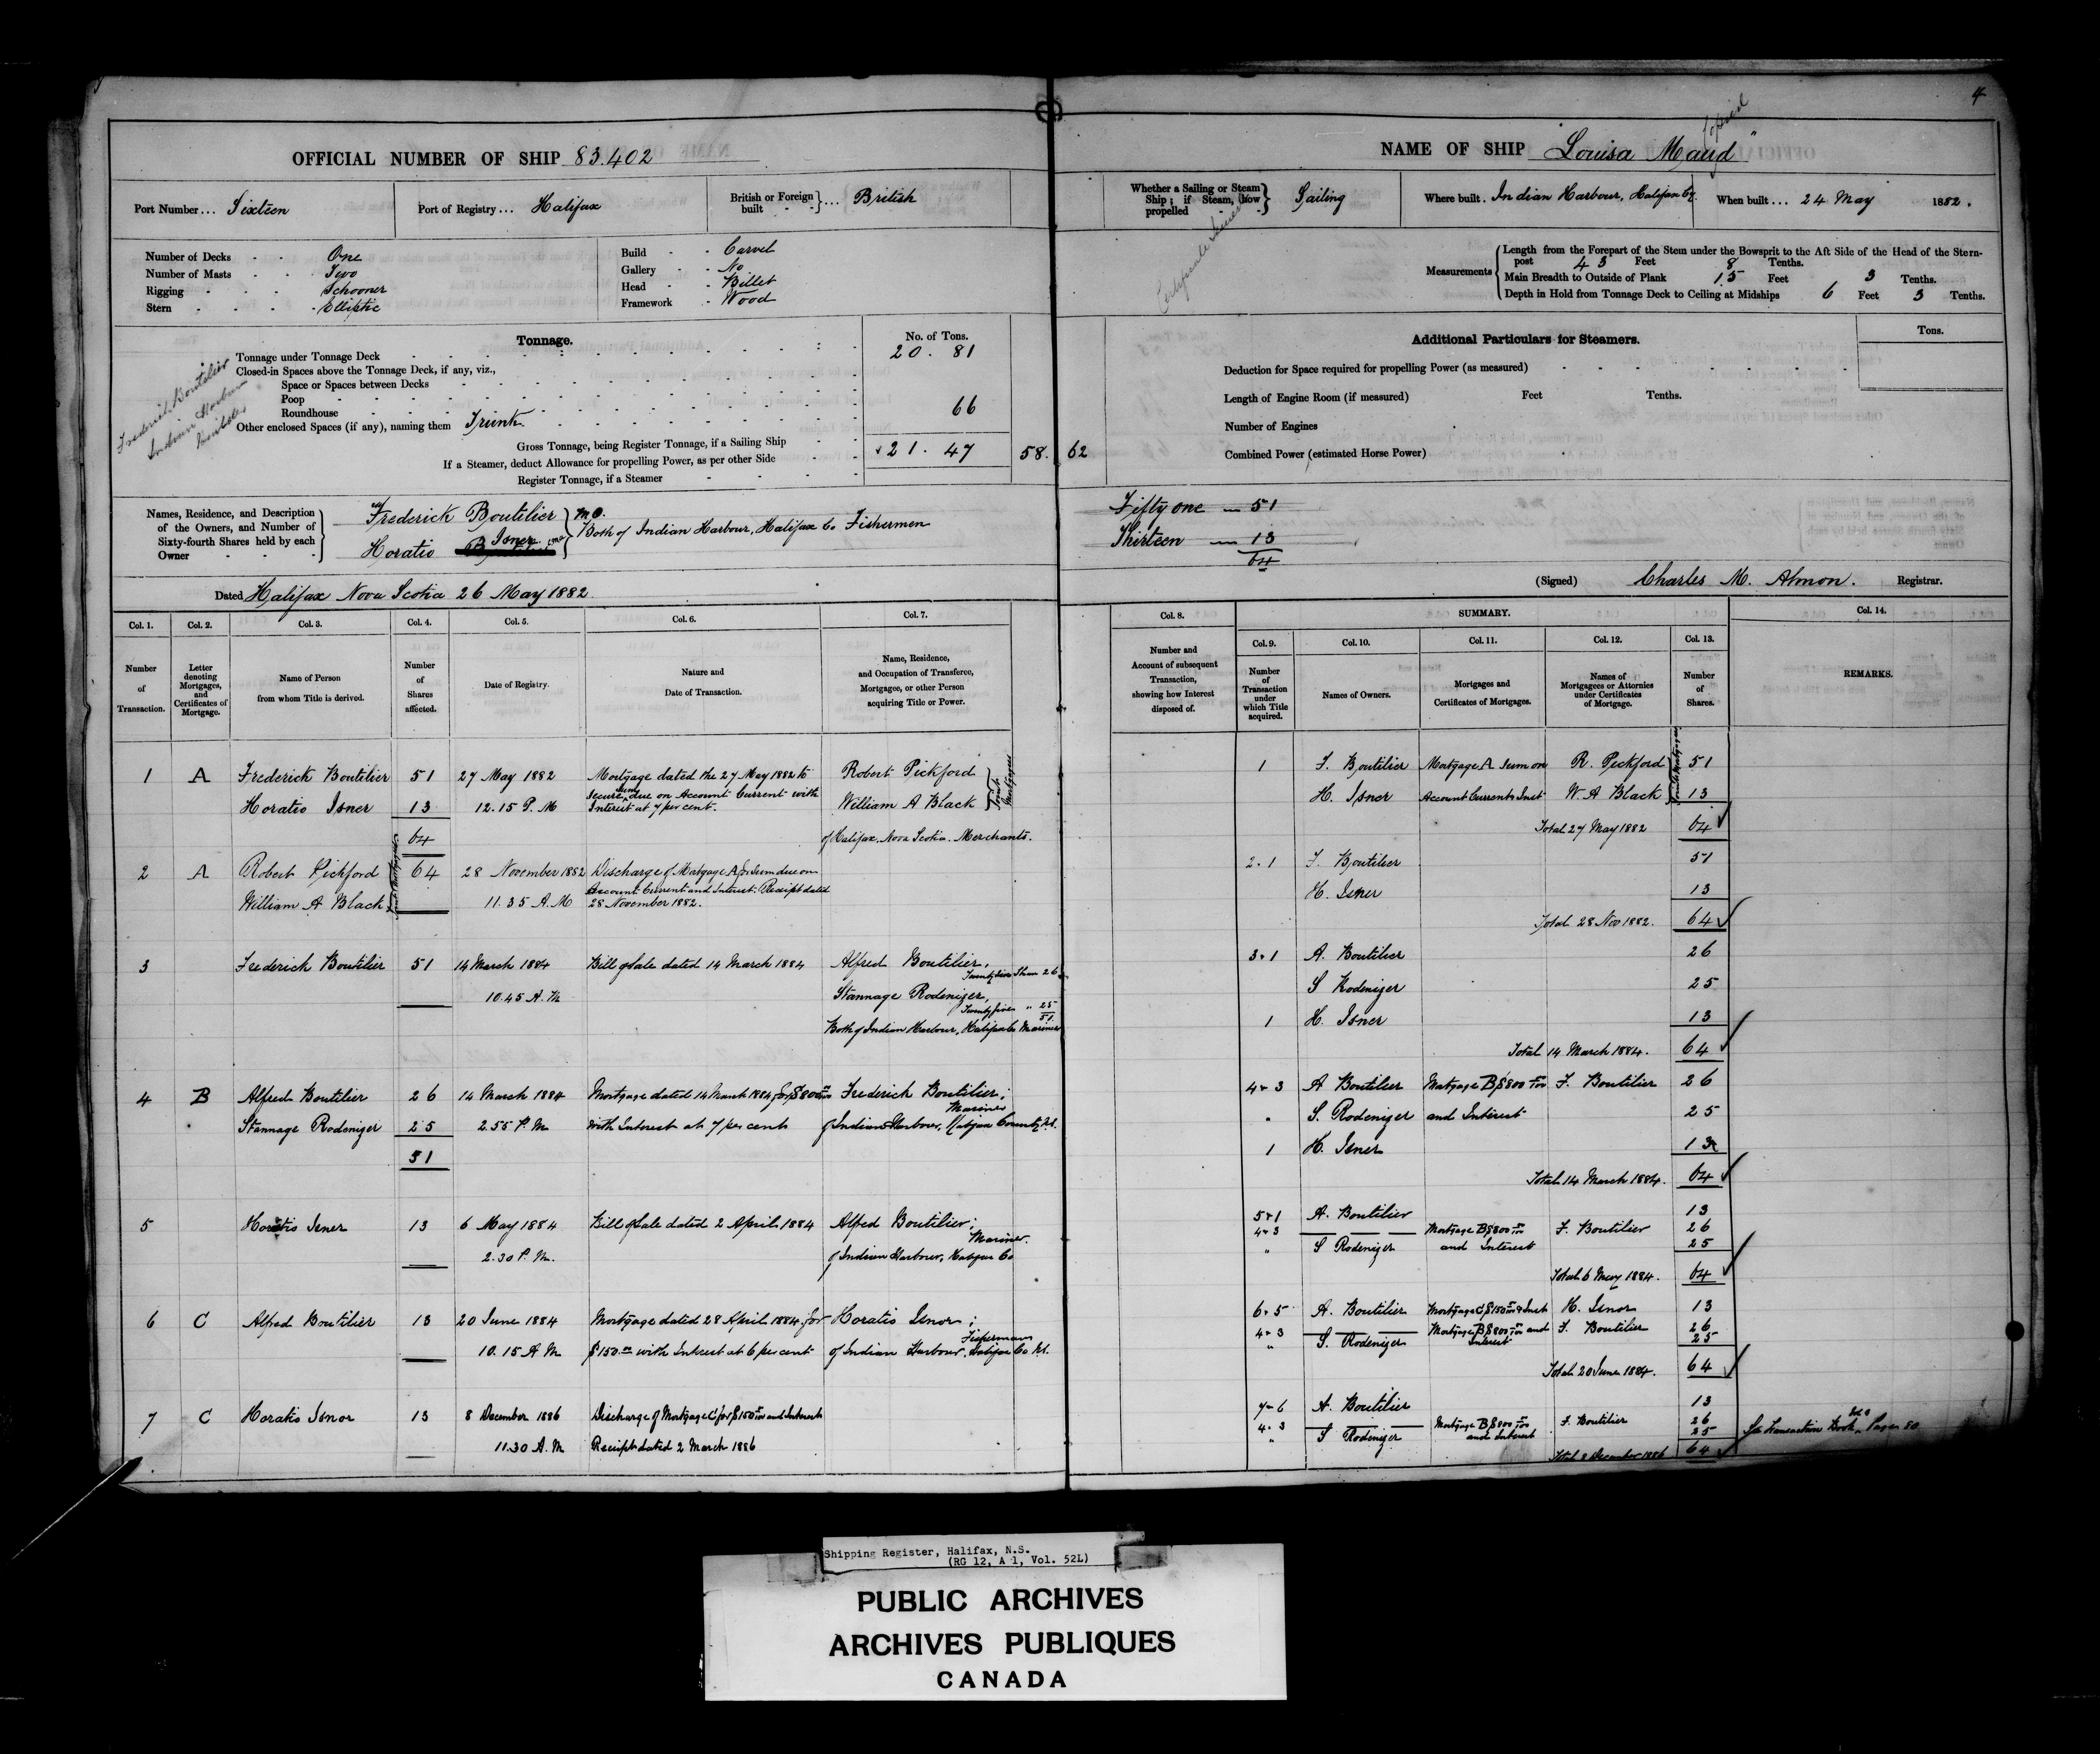 4
OFFICIAL NUMBER OF SHIP 83.402
Port Number... Sixteen
Port of Registry... Halifax
British or Foreign built } ... British
Number of Decks - - One
Number of Masts - - Two
Rigging - - - Schooner
Stern - - - Elliptic
Build - - Carvel
Gallery - - No
Head - - Billet
Framework - Wood
Tonnage.
No. of Tons.
Tonnage under Tonnage Deck 20. 81
Closed-in Spaces above the Tonnage Deck, if any, viz.,
Space or Spaces between Decks
Poop
Roundhouse
Other enclosed Spaces (if any), naming them Trunk 66
Gross Tonnage, being Register Tonnage, if a Sailing Ship 21. 47 58. 62
If a Steamer, deduct Allowance for propelling Power, as per other Side
Register Tonnage, if a Steamer
Frederick Boutilier
Indian Harbour
Names, Residence, and Description of the Owners, and Number of Sixty-fourth Shares held by each Owner
Frederick Boutilier
Horatio Isner
Both of Indian Harbour, Halifax Co Fishermen
Dated Halifax Nova Scotia 26 May 1882
NAME OF SHIP "Louisa Maud"
Whether a Sailing or Steam Ship; if Steam, how propelled } Sailing
Where built. Indian Harbour, Halifax Co.
When built... 24 May 1882.
Measurements
Length from the Forepart of the Stem under the Bowsprit to the Aft Side of the Head of the Stern-
post 43 Feet 8 Tenths.
Main Breadth to Outside of Plank 15 Feet 3 Tenths.
Depth in Hold from Tonnage Deck to Ceiling at Midships 6 Feet 3 Tenths.
Additional Particulars for Steamers.
Tons.
Deduction for Space required for propelling Power (as measured)
Length of Engine Room (if measured) Feet Tenths.
Number of Engines
Combined Power (estimated Horse Power)
Fifty one — 51
Thirteen — 13
64
(Signed) Charles M. Almon. Registrar.
Col. 1. Col. 2. Col. 3. Col. 4. Col. 5. Col. 6. Col. 7.
Number of Transaction.
Letter denoting Mortgages, and Certificates of Mortgage.
Name of Person from whom Title is derived.
Number of Shares affected.
Date of Registry.
Nature and Date of Transaction.
Name, Residence, and Occupation of Transferee, Mortgagee, or other Person acquiring Title or Power.
1 A Frederick Boutilier 51 27 May 1882 Mortgage dated the 27 May 1882 to Robert Pickford
Secure Sum due on Account Current with
Horatio Isner 13 12.15 P.M Interest at 7 per cent. William A Black
Joint Mortgagees
64 of Halifax, Nova Scotia. Merchants.
2 A Robert Pickford 64 28 November 1882 Discharge of Mortgage A for Sum due on
Account Current and Interest. Receipt dated
William A Black 11.35 A.M 28 November 1882.
3 Frederick Boutilier 51 14 March 1884 Bill of Sale dated 14 March 1884 Alfred Boutilier,
Twenty six Shares 26
10.45 A.M Stannage Rodenizer,
Twenty five " 25
51
Both of Indian Harbour, Halifax Co Mariners
4 B Alfred Boutilier 26 14 March 1884 Mortgage dated 14 March 1884 for $800 Frederick Boutilier;
Mariner
Stannage Rodenizer 25 2.55 P.M with Interest at 7 per cent of Indian Harbour, Halifax County N.S.
51
5 Horatio Isner 13 6 May 1884 Bill of Sale dated 2 April 1884 Alfred Boutilier;
Mariner.
2.30 P.M. of Indian Harbour, Halifax Co
6 C Alfred Boutilier 13 20 June 1884 Mortgage dated 28 April 1884 for Horatio Isnor;
Fisherman
10.15 A M $150.00 with Interest at 6 per cent of Indian Harbour, Halifax Co N.S.
7 C Horatio Isnor 13 8 December 1886 Discharge of Mortgage C for $150 and Interest
11.30 A.M Receipt dated 2 March 1886
Col. 8.
Number and Account of subsequent Transaction, showing how Interest disposed of.
SUMMARY.
Col. 9. Col. 10. Col. 11. Col. 12. Col. 13. Col. 14.
Number of Transaction under which Title acquired.
Names of Owners.
Mortgages and Certificates of Mortgages.
Names of Mortgagees or Attornies under Certificates of Mortgage.
Number of Shares.
REMARKS.
1 F. Boutilier Mortgage A Sum on R. Pickford 51
H. Isner Account Current & Inst W. A Black 13
Joint Mortgagees
Total 27 May 1882 64
2.1 F. Boutilier 51
H. Isner 13
Total 28 Nov 1882. 64
3.1 A. Boutilier 26
S Rodenizer 25
1 H. Isner 13
Total 14 March 1884. 64
4.3 A Boutilier Mortgage B $800 F. Boutilier 26
" S. Rodenizer and Interest 25
1 H. Isner 13
Total 14 March 1884. 64
5.1 A. Boutilier 13
4.3 — Mortgage B $800 F. Boutilier 26
" S Rodenizer and Interest 25
Total 6 May 1884. 64
6.5 A. Boutilier Mortgage C $150 & Inst H. Isnor 13
4.3 — Mortgage B $800 and F. Boutilier 26
" S. Rodenizer Interest 25
Total 20 June 1884. 64
7.6 A. Boutilier 13
4.3 — Mortgage B $800 F. Boutilier 26
" S Rodenizer and Interest 25
Total 8 December 1886 64
See Transaction Book, Page 80
Shipping Register, Halifax, N.S.
(RG 12, A 1, Vol. 52L)
PUBLIC ARCHIVES
ARCHIVES PUBLIQUES
CANADA